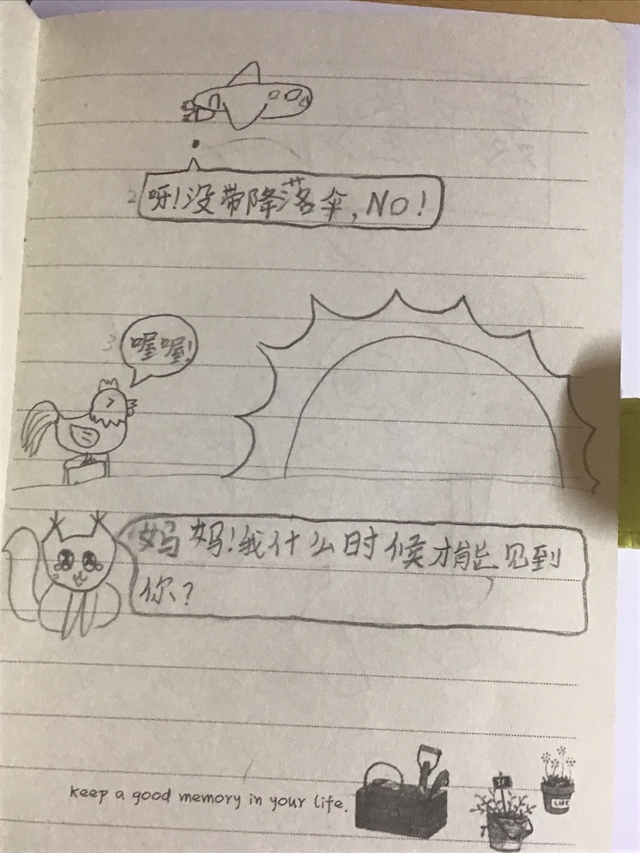 2 呀!没带降落伞,NO!
3 喔喔!
妈妈!我什么时候才能见到
你?
keep a good memory in your life.